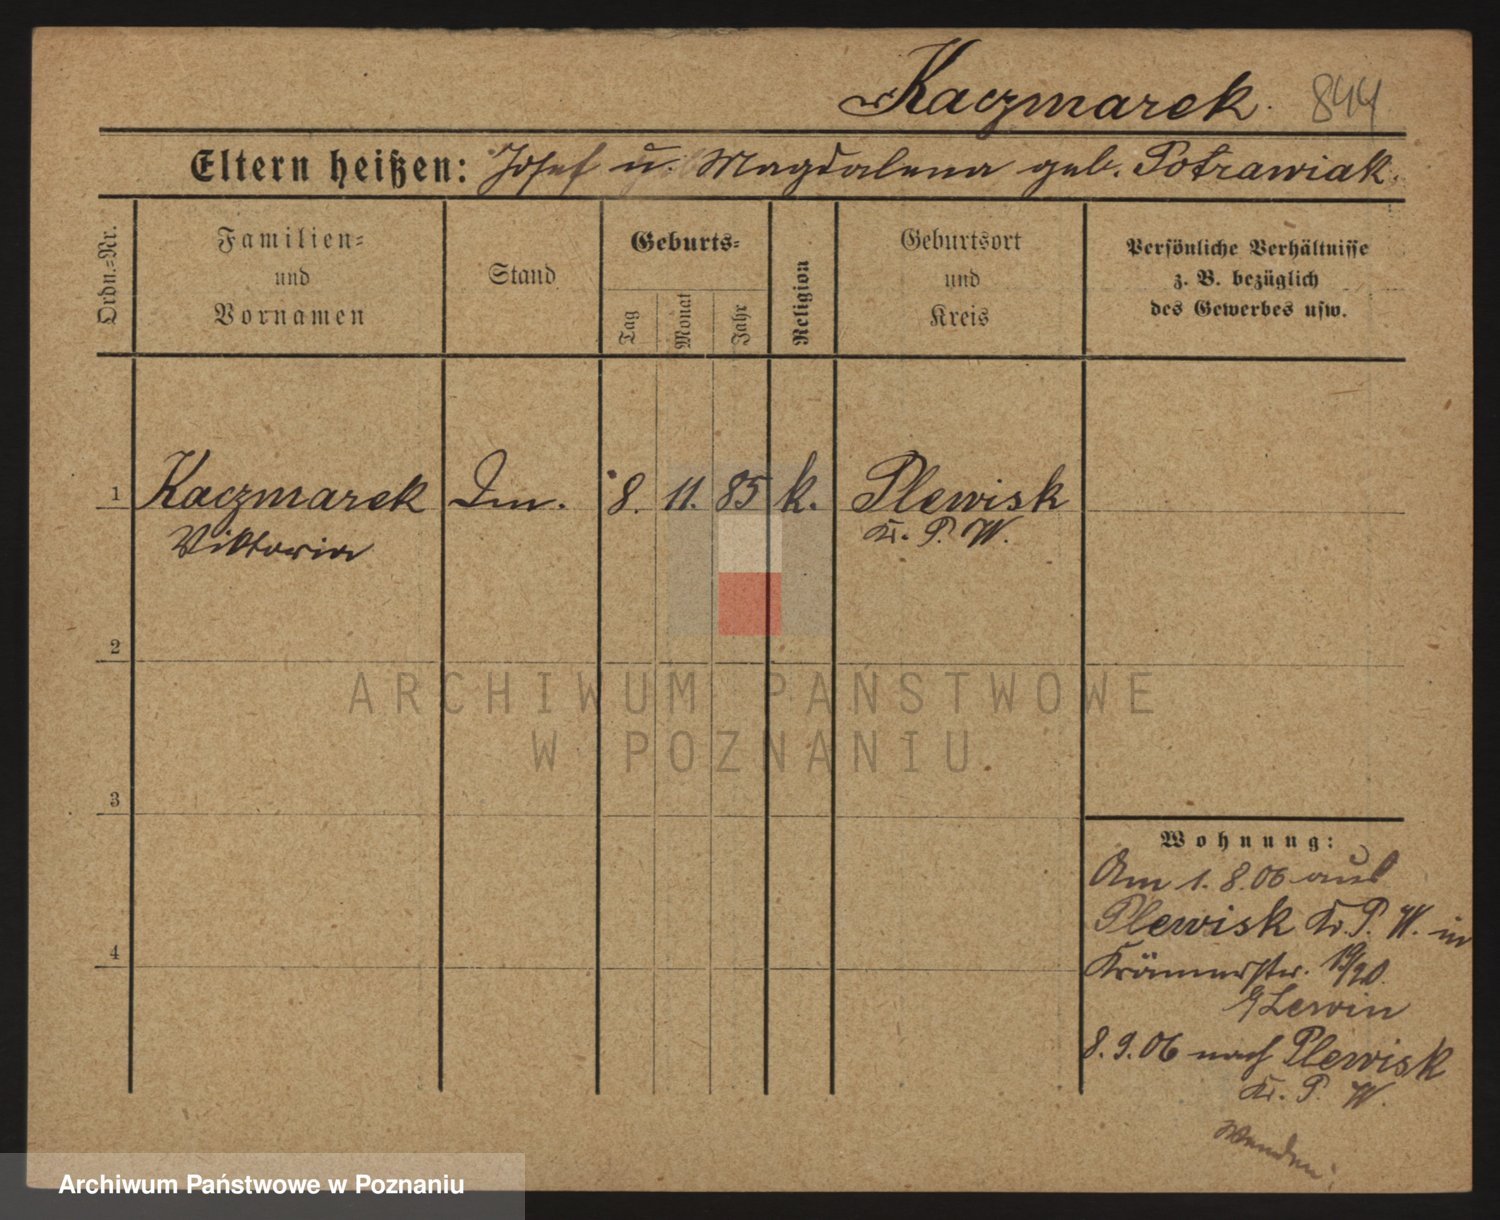 Kaczmarek. 844
Eltern heißen: Josef u. Magdalena geb. Potrawiak.
Ordn.=Nr.
Familien=
und
Vornamen
Stand
Geburts=
Tag
Monat
Jahr
Religion
Geburtsort
und
Kreis
Persönliche Verhältnisse
z. B. bezüglich
des Gewerbes usw.
1 Kaczmarek 8. 11. 85 k. Plewisk
Viktoria Kr. P. W.
2
3
4
Wohnung:
Am 1. 8. 06 aus
Plewisk Kr. P. W. in
Krämerstr. 19/20.
Lewin
8. 9. 06 nach Plewisk
Kr. P. W.
Wenden!
ARCHIWUM PAŃSTWOWE
W POZNANIU
Archiwum Państwowe w Poznaniu